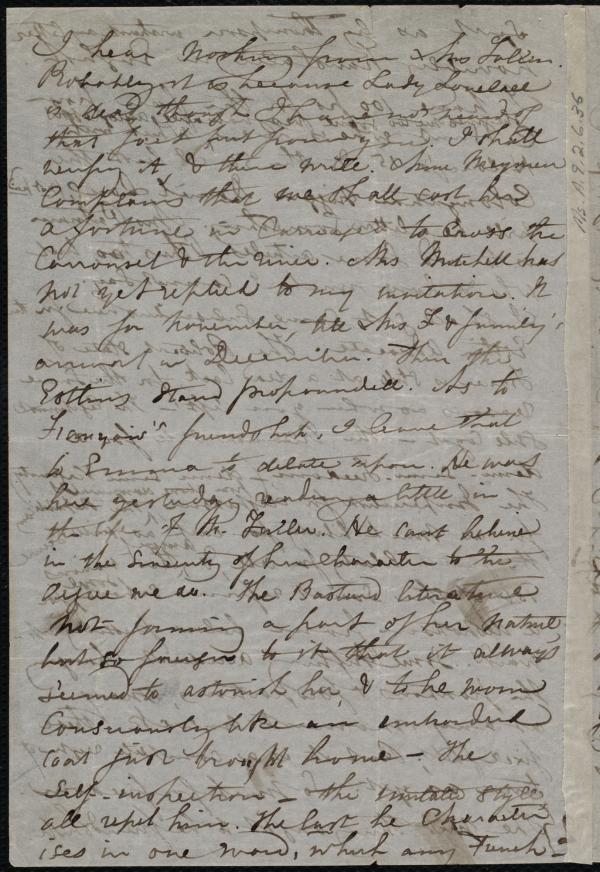 I hear nothing from Mrs Follen.
Probably it is because Lady Lovelace
is dead though I have not heard of
that fact but from you. I shall
verify it, & then write. Anne
Complains that we shall cost her
a fortune in Carriages to cross the
Carrousel & the river. Mrs Mitchell has
not yet replied to my invitation. It
was for November, till Mrs F & family's
arrival in December. Thus the
stand propounded. As to
François' friendship, I leave that
to Emma to dilate upon. He was
here yesterday reading a little in
the life of M. Fuller. He can't believe
in the sincerity of her character to the
degree we do. The Bastard literature
not forming a part of her nature
but so foreign to it that it always
seemed to astonish her, & to be worn
Consciously like an embroidered
coat just brought home – The
Self-inspection – the style
all repel him. The last he character
ises in one word, which any French=
Ms. A.9.2.6.56